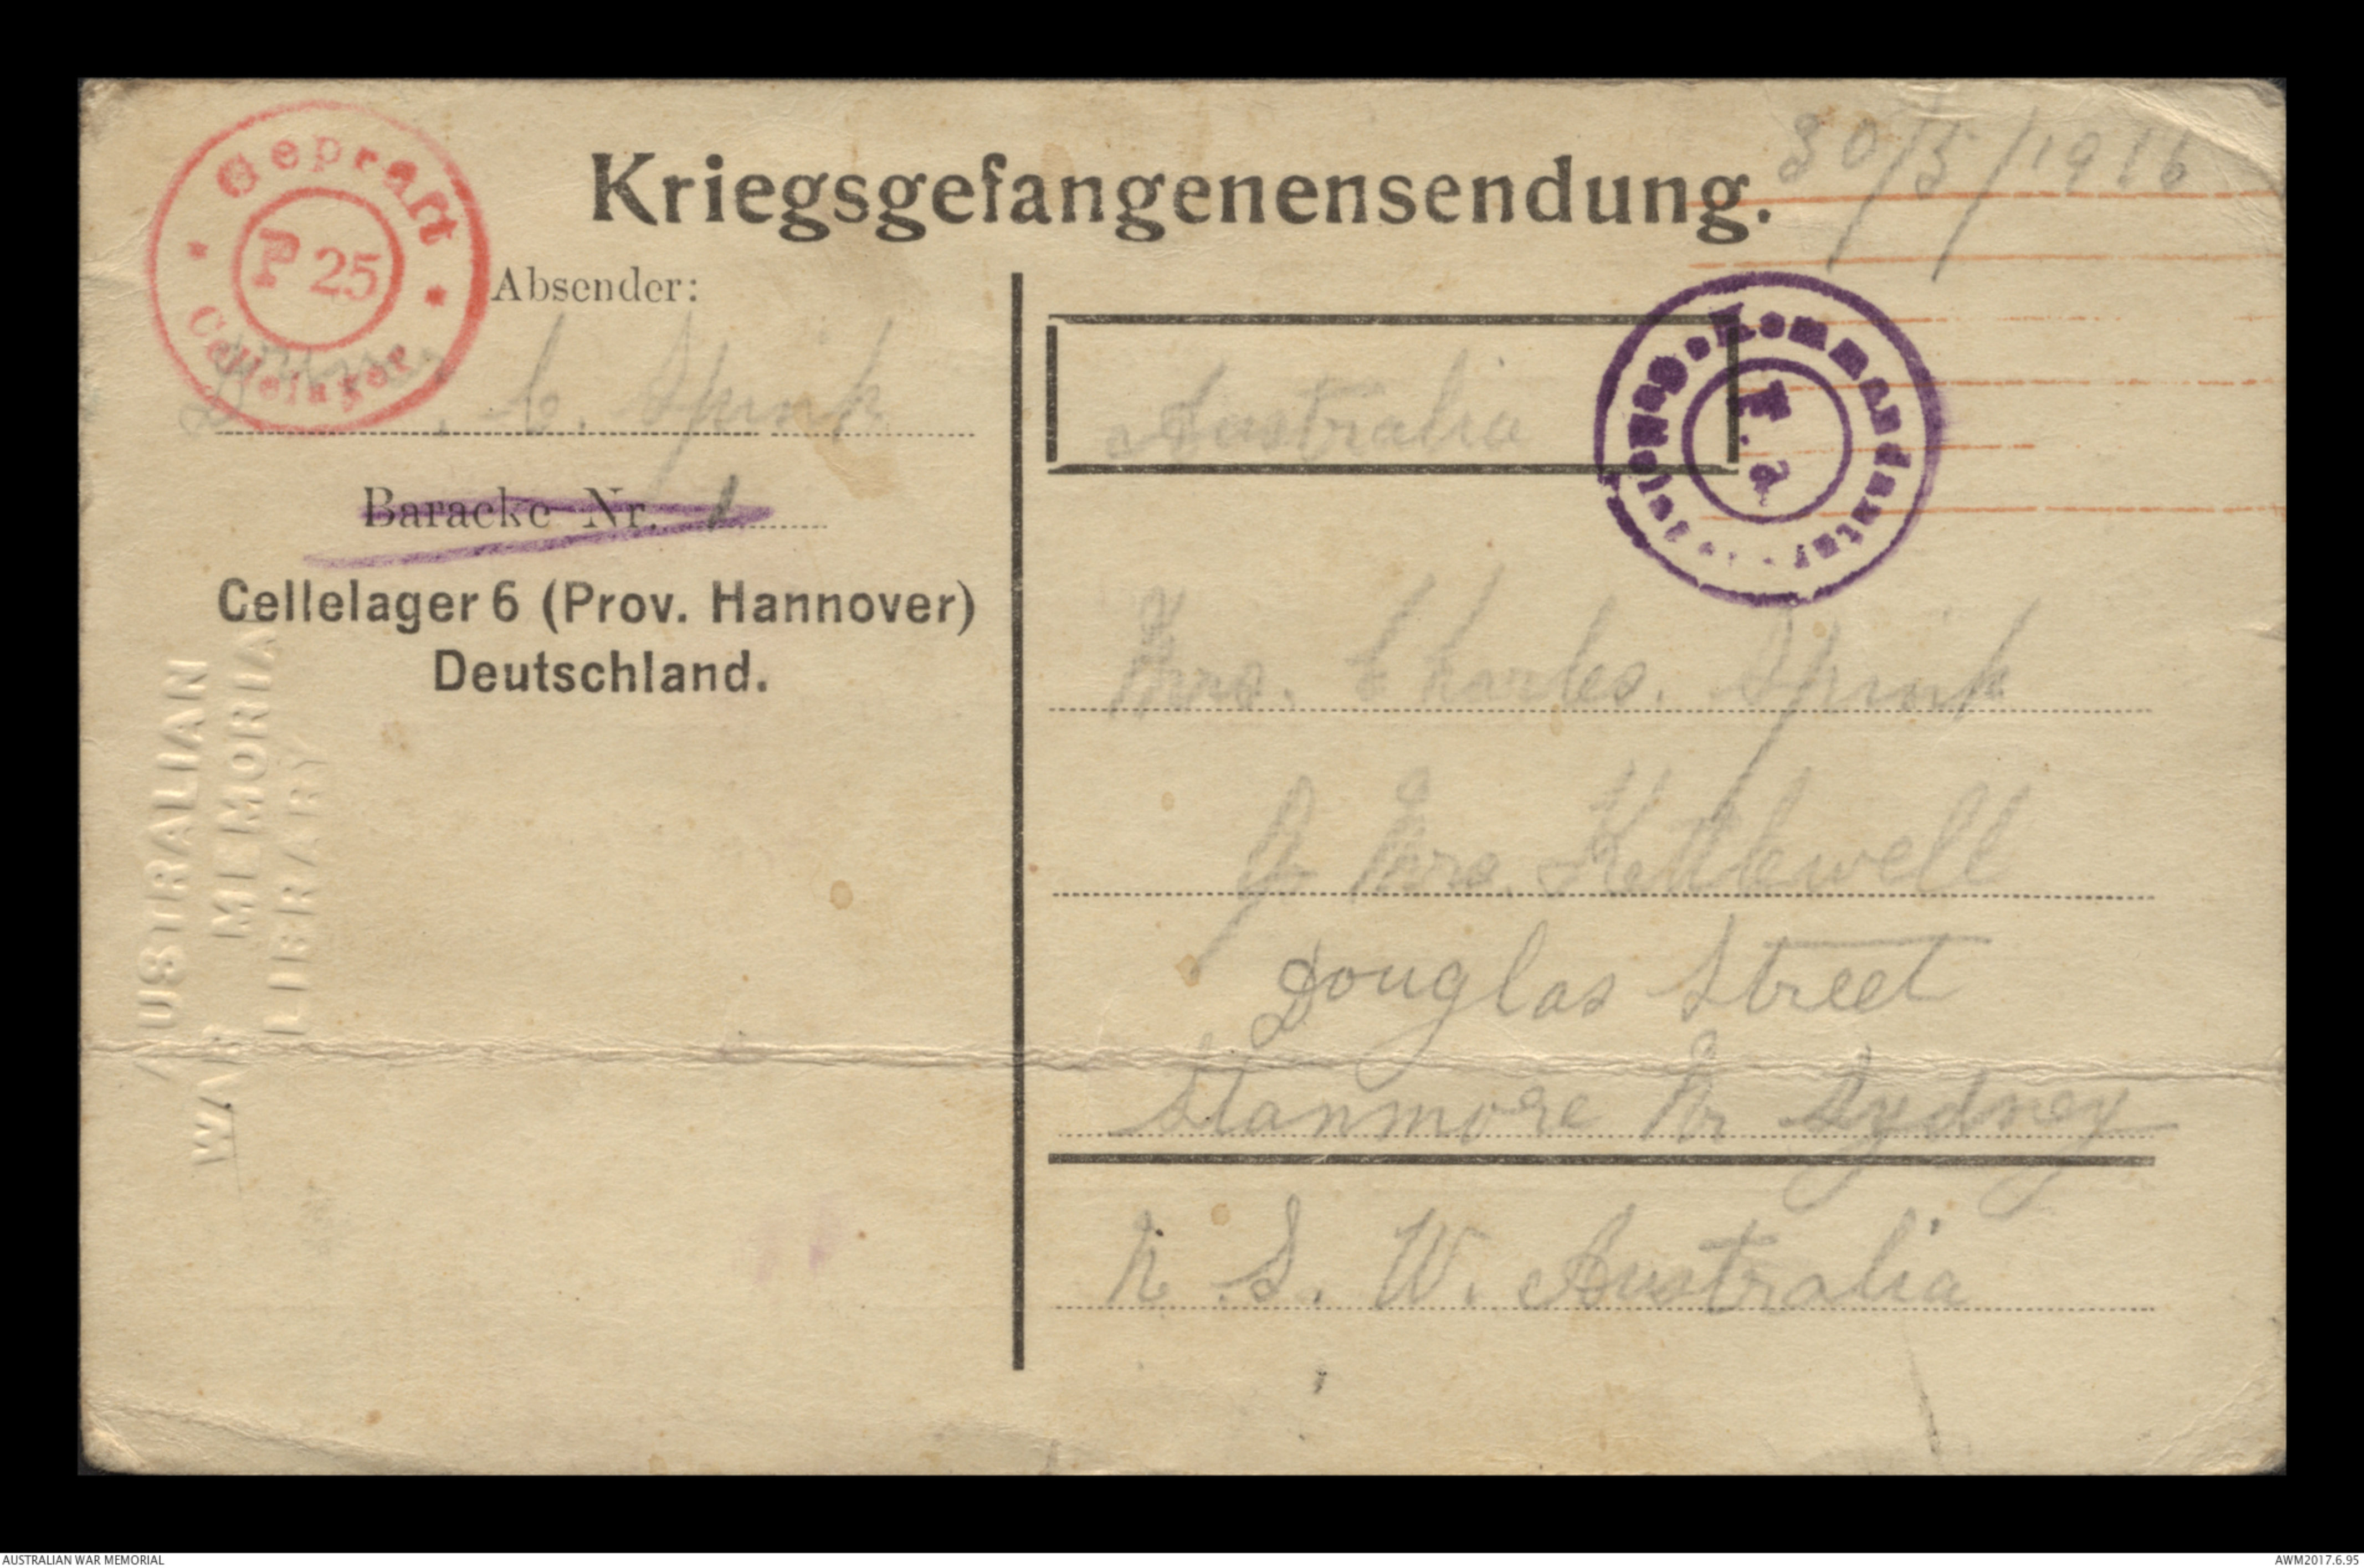 30/5/1916
Kriegsgefangenensendung.
Geprüft
P 25
Cellelager
Absender:
C. Spink
Baracke Nr. 1
Cellelager 6 (Prov. Hannover)
Deutschland.
AUSTRALIAN
WAR MEMORIAL
LIBRARY
Australia
Kommandantur
F. a.
Mrs. Charles. Spink
Mrs. Kettlewell
Douglas Street
Stanmore Nr Sydney
N. S. W. Australia
AUSTRALIAN WAR MEMORIAL
AWM2017.6.95